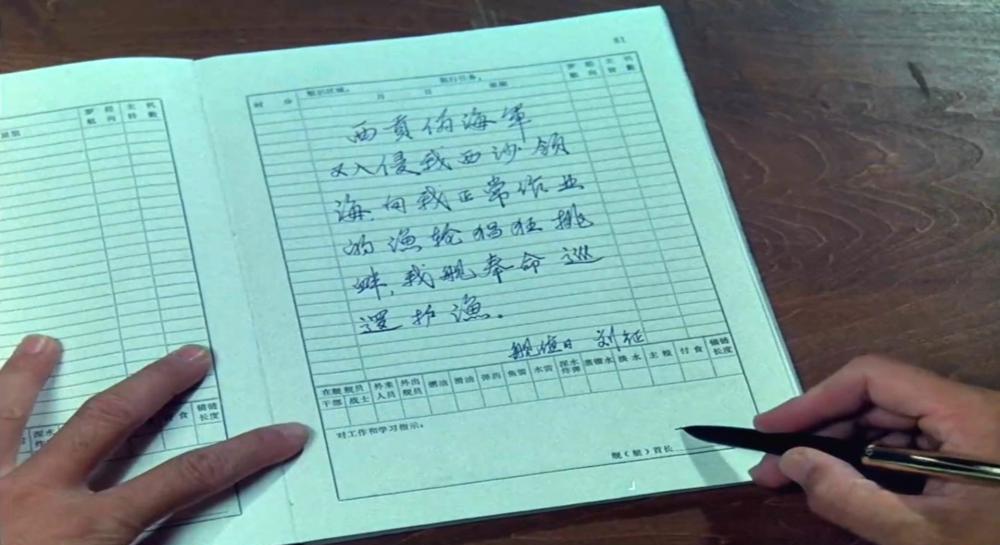 81
时 分 航行任务。
月 日
罗经航向 主机转数
西贡伪海军
又入侵我西沙领
海向我正常作业
的渔轮猖狂挑
衅,我舰奉命巡
逻护渔。
舰值日 刘征
在舰舰员 外来人员 外出舰员 燃油 滑油 弹药 鱼雷 水雷 深水炸弹 蒸馏水 淡水 主粮 付食 锚链长度
干部 战士
对工作和学习指示。
舰(艇)首长
罗经航向 主机转数
食 锚链长度